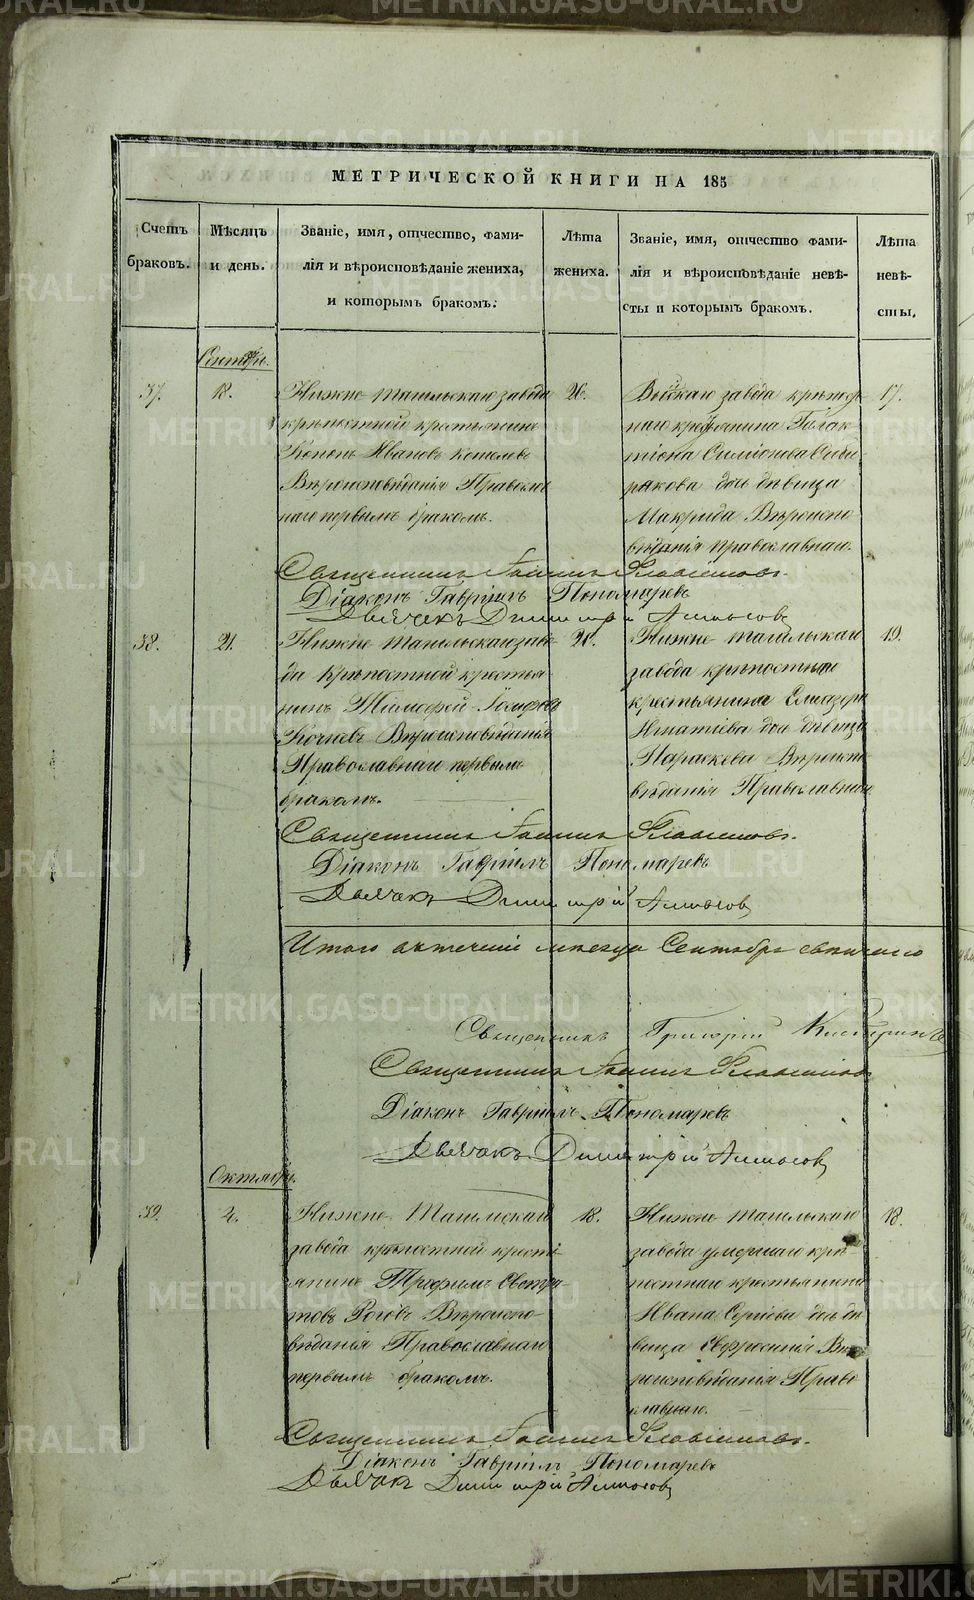 МЕТРИЧЕСКОЙ КНИГИ НА 185
Счетъ
браковъ.
Мѣсяцъ
и день.
Званіе, имя, отчество, фами-
лія и вѣроисповѣданіе жениха,
и которымъ бракомъ.
Лѣта
жениха.
Званіе, имя, отчество фами-
лія и вѣроисповѣданіе невѣ-
сты и которымъ бракомъ.
Лѣта
невѣ-
сты.
Сентября.
37.
18.
Нижне Тагильскаго завода
крѣпостной крестьянинъ
Ивановъ
Вѣроисповѣданія Православ
наго первымъ бракомъ.
26.
завода крѣпост
наго крестьянина Галак
тіона Симіонова Сиби
рякова дочь дѣвица
Макрида Вѣроиспо
вѣданія православнаго.
17.
Священникъ Іоаннъ
Діаконъ Гавріилъ Пономаревъ
Дьячекъ Димитрій
38.
21.
Нижне Тагильскаго заво
да Крѣпостной крестья
нинъ Тимофей
Вѣроисповѣданія
Православнаго первымъ
бракомъ.
21.
Нижне Тагильскаго
завода крѣпостнаго
крестьянина Елиазара
Игнатіева доч дѣвица
Параскева Вѣроиспо
вѣданія Православнаго
19.
Священникъ Іоаннъ
Діаконъ Гавріилъ Пономаревъ
Дьячекъ Димитрій
Итого втеченіи месяца Сентября
Священникъ Григорій
Священникъ Іоаннъ
Діаконъ Гавріилъ Пономаревъ
Дьячекъ Димитрій
Октября.
39.
4.
Нижне Тагильскаго
завода крѣпостной крестья
янинъ Трофимъ Евстра
товъ Роговъ Вѣроиспо
вѣданія Православнаго
первымъ бракомъ.
18.
Нижне Тагильскаго
завода умершаго крѣ
постнаго крестьянина
Ивана Сергіева доч дѣ
вица Евфросинія Вѣ
роисповѣданія Право
славнаго.
18.
Священникъ Іоаннъ
Діаконъ Гавріилъ Пономаревъ
Дьячекъ Димитрій
METRIKI.GASO-URAL.RU